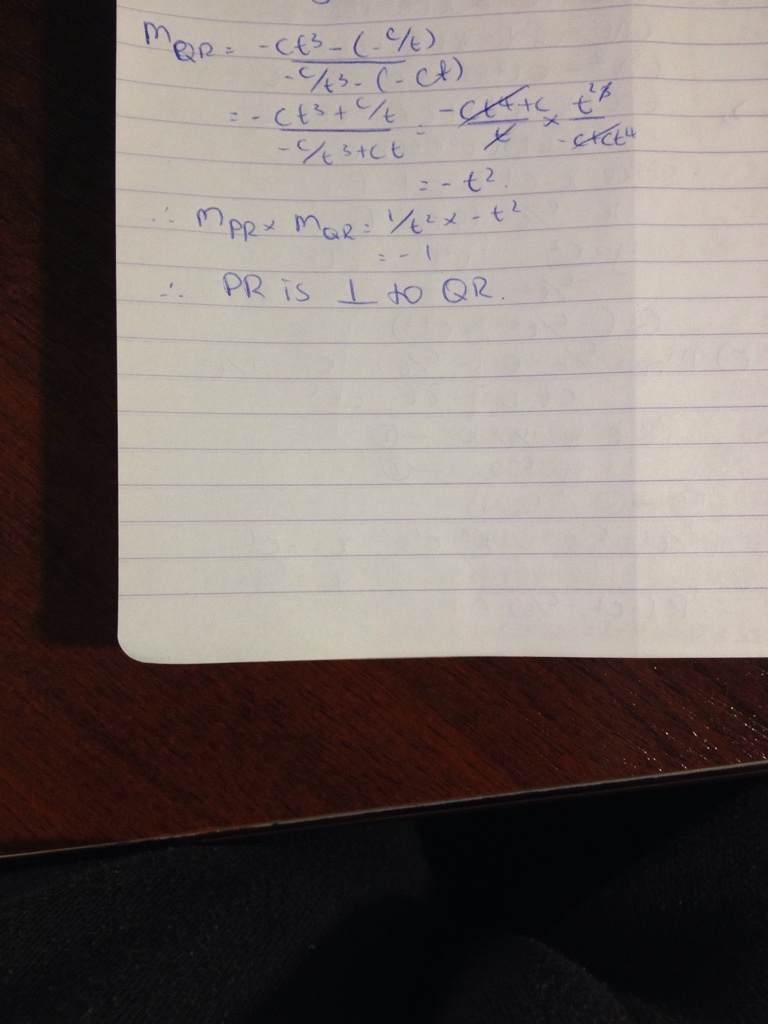 mQR = -ct³ - (-c/t)
-c/t³ - (-ct)
= -ct³ + c/t = -ct⁴ + c × t²3
-c/t³ + ct t -c + ct⁴
= -t².
∴ mPR × mQR = 1/t² × -t²
= -1
∴ PR is ⊥ to QR.